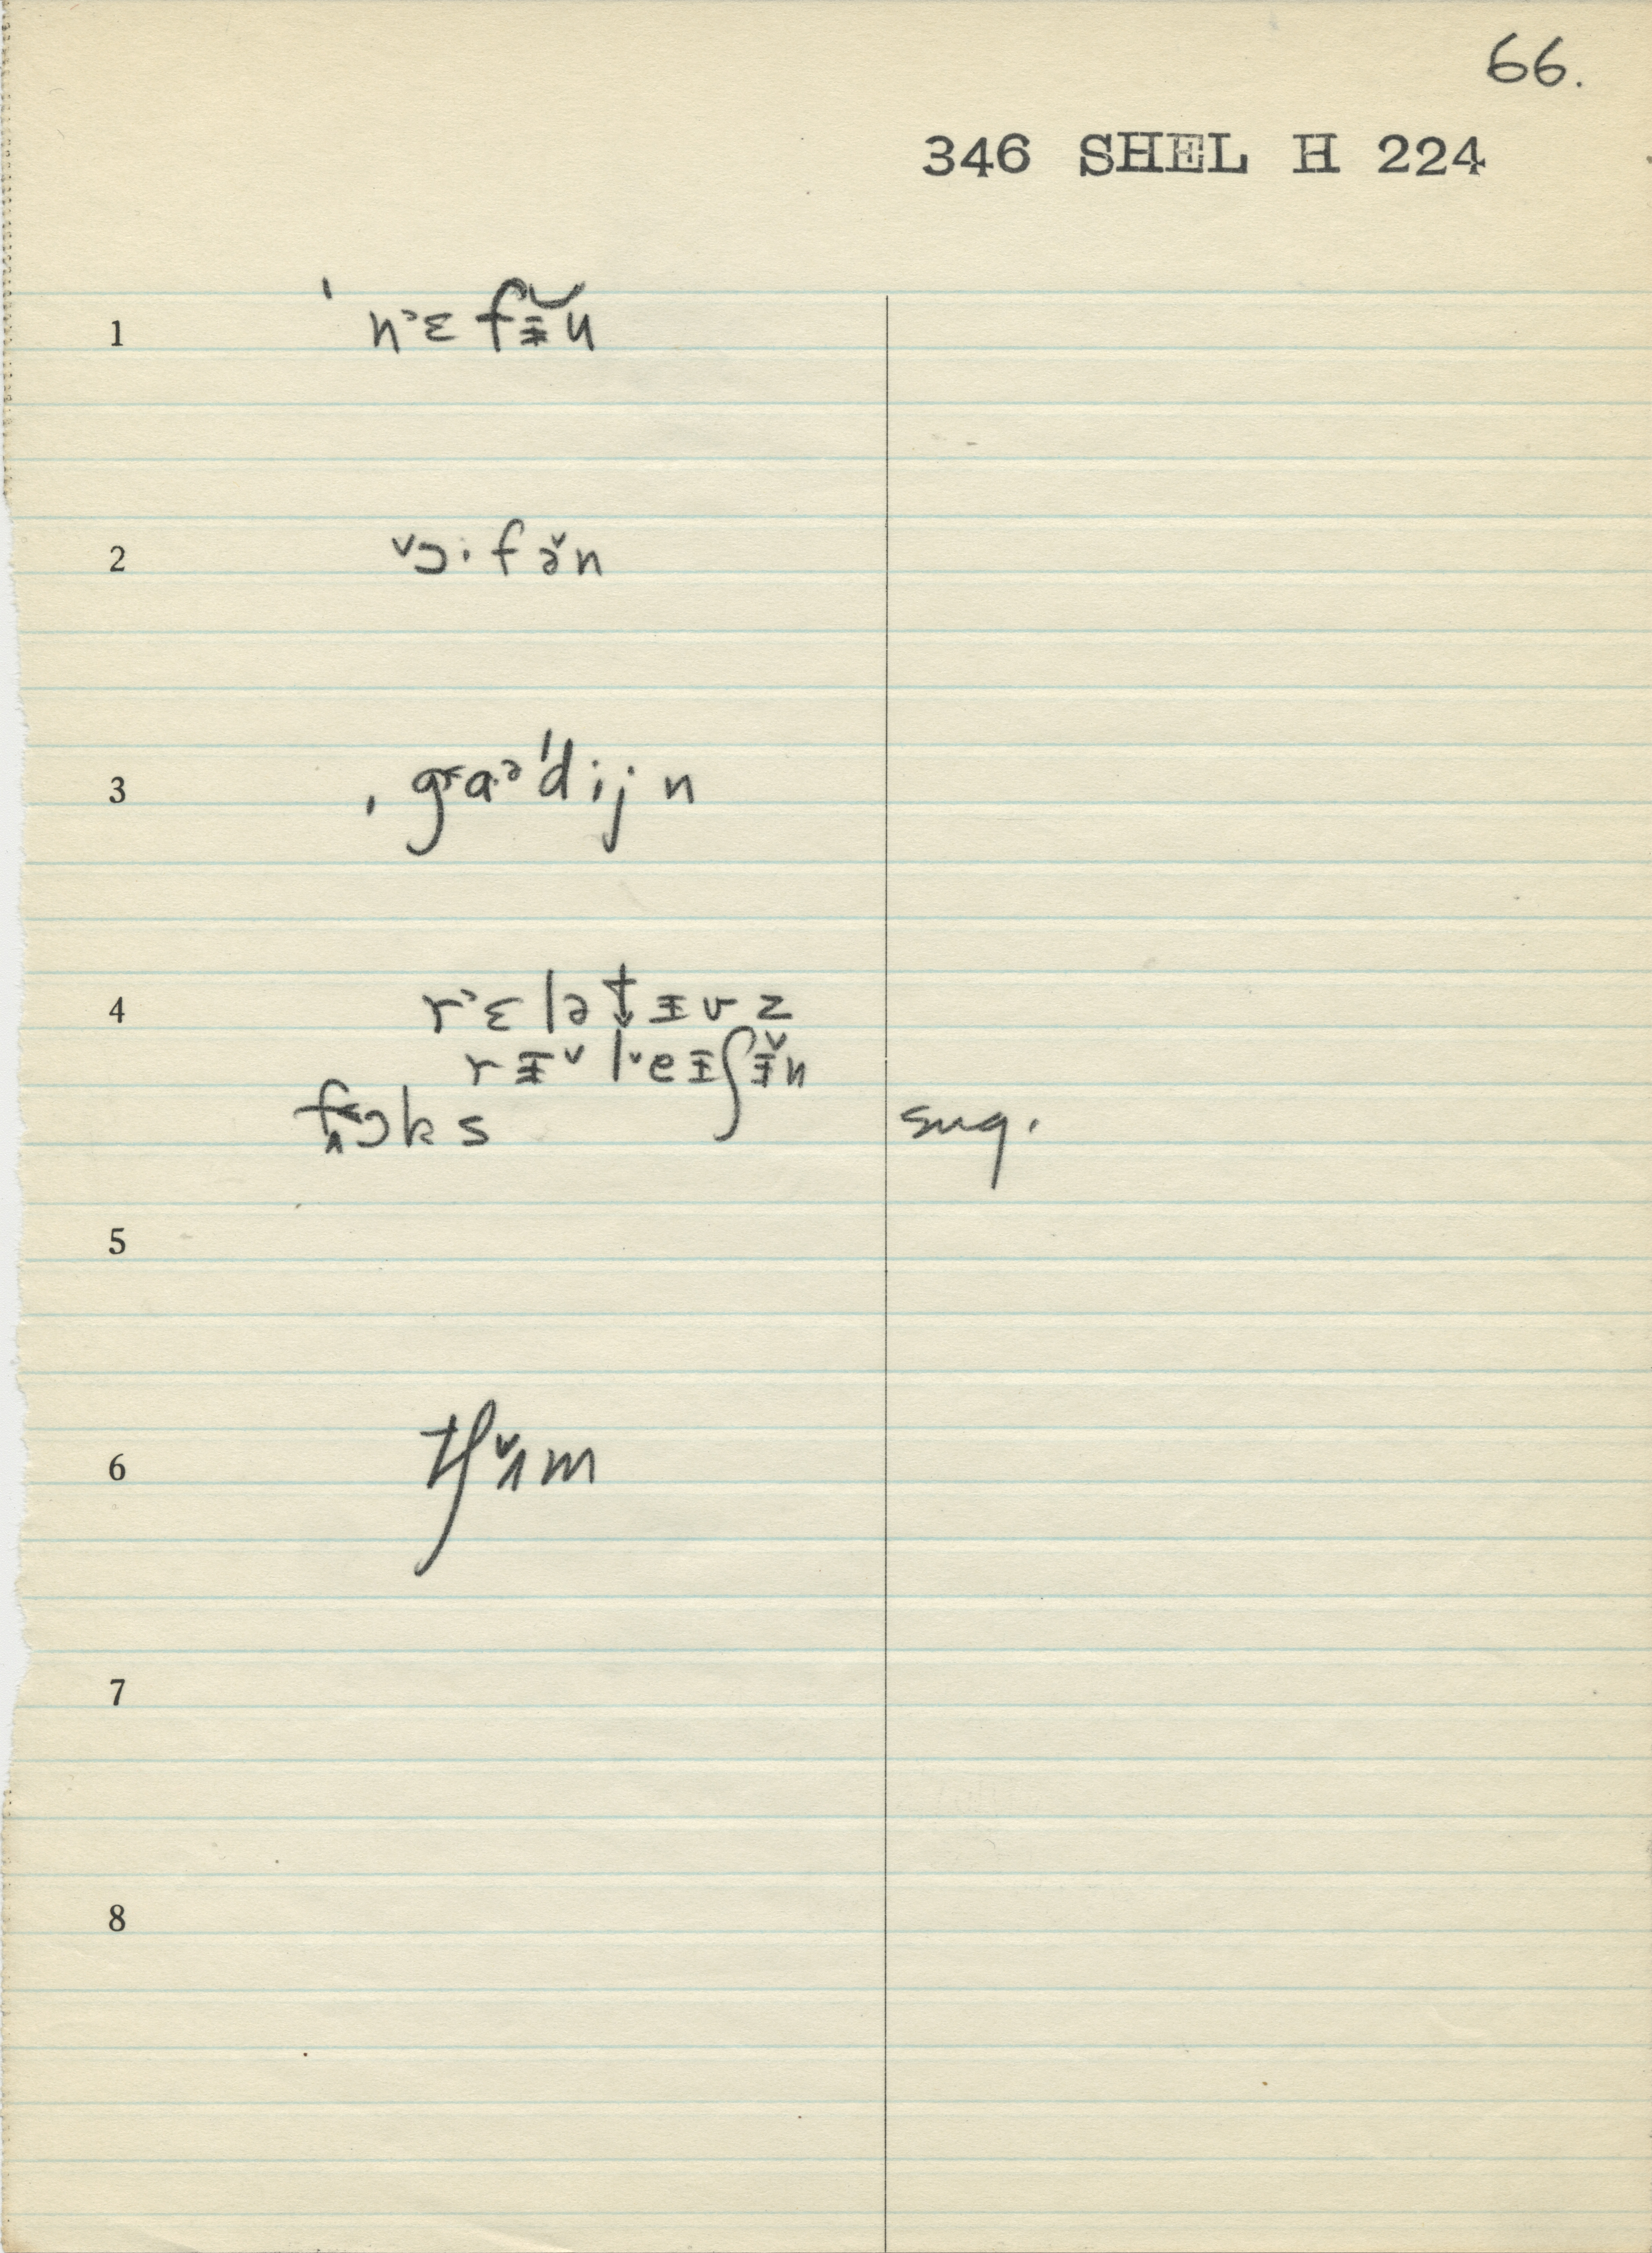 66.
346 SHEL H 224
1 ˈnᵊɛfɪ̵̆n
2 ˅ɔ·fə̆n
3 ˌg˂a·ᵊˈdijn
4 r˃ɛlət̬ɪ̵vz
rɪ̵˅l˅eɪ̵ʃɪ̵̆n
f˂ɔks sug.
5
6 tʃʌ̌m
7
8